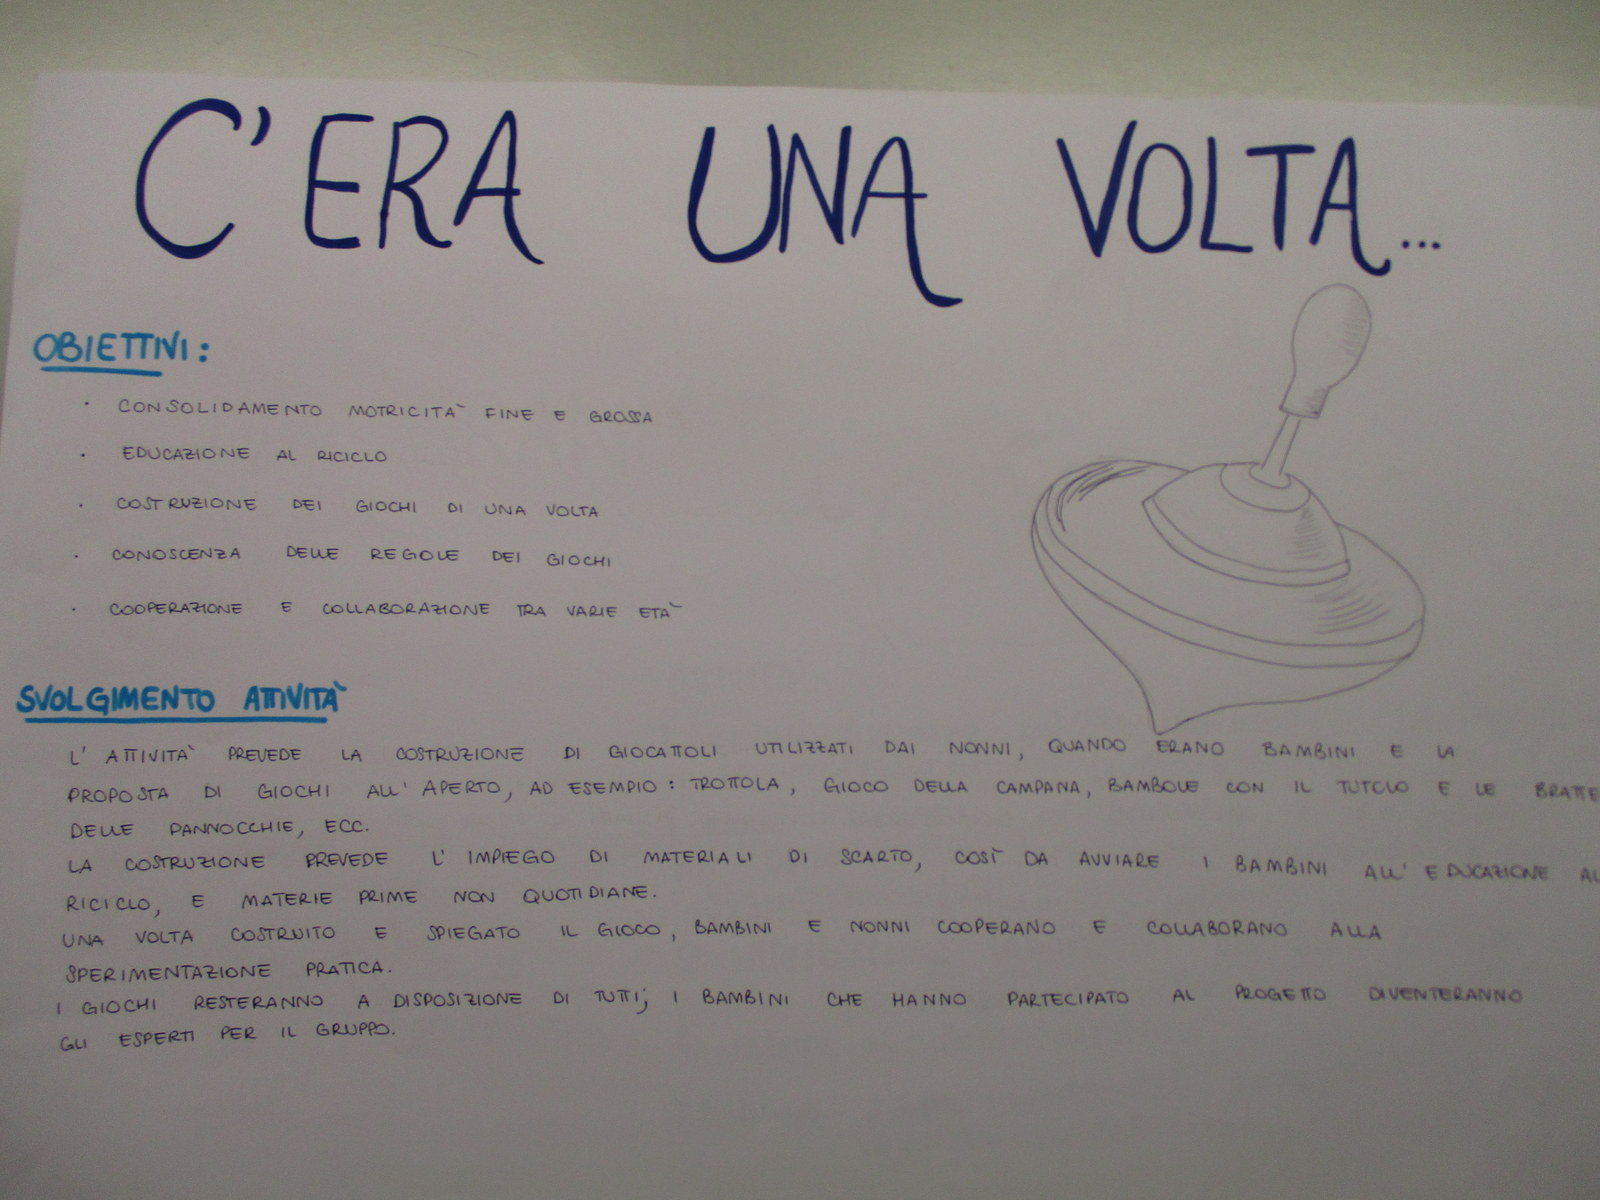 C'ERA UNA VOLTA...
OBIETTIVI:
· CONSOLIDAMENTO MOTRICITÀ FINE E GROSSA
· EDUCAZIONE AL RICICLO
· COSTRUZIONE DEI GIOCHI DI UNA VOLTA
· CONOSCENZA DELLE REGOLE DEI GIOCHI
· COOPERAZIONE E COLLABORAZIONE TRA VARIE ETÀ
SVOLGIMENTO ATTIVITÀ
L'ATTIVITÀ PREVEDE LA COSTRUZIONE DI GIOCATTOLI UTILIZZATI DAI NONNI, QUANDO ERANO BAMBINI E LA
PROPOSTA DI GIOCHI ALL'APERTO, AD ESEMPIO: TROTTOLA, GIOCO DELLA CAMPANA, BAMBOLE CON IL TUTOLO E LE BRATTE
DELLE PANNOCCHIE, ECC.
LA COSTRUZIONE PREVEDE L'IMPIEGO DI MATERIALI DI SCARTO, COSÌ DA AVVIARE I BAMBINI ALL'EDUCAZIONE AL
RICICLO, E MATERIE PRIME NON QUOTIDIANE.
UNA VOLTA COSTRUITO E SPIEGATO IL GIOCO, BAMBINI E NONNI COOPERANO E COLLABORANO ALLA
SPERIMENTAZIONE PRATICA.
I GIOCHI RESTERANNO A DISPOSIZIONE DI TUTTI; I BAMBINI CHE HANNO PARTECIPATO AL PROGETTO DIVENTERANNO
GLI ESPERTI PER IL GRUPPO.